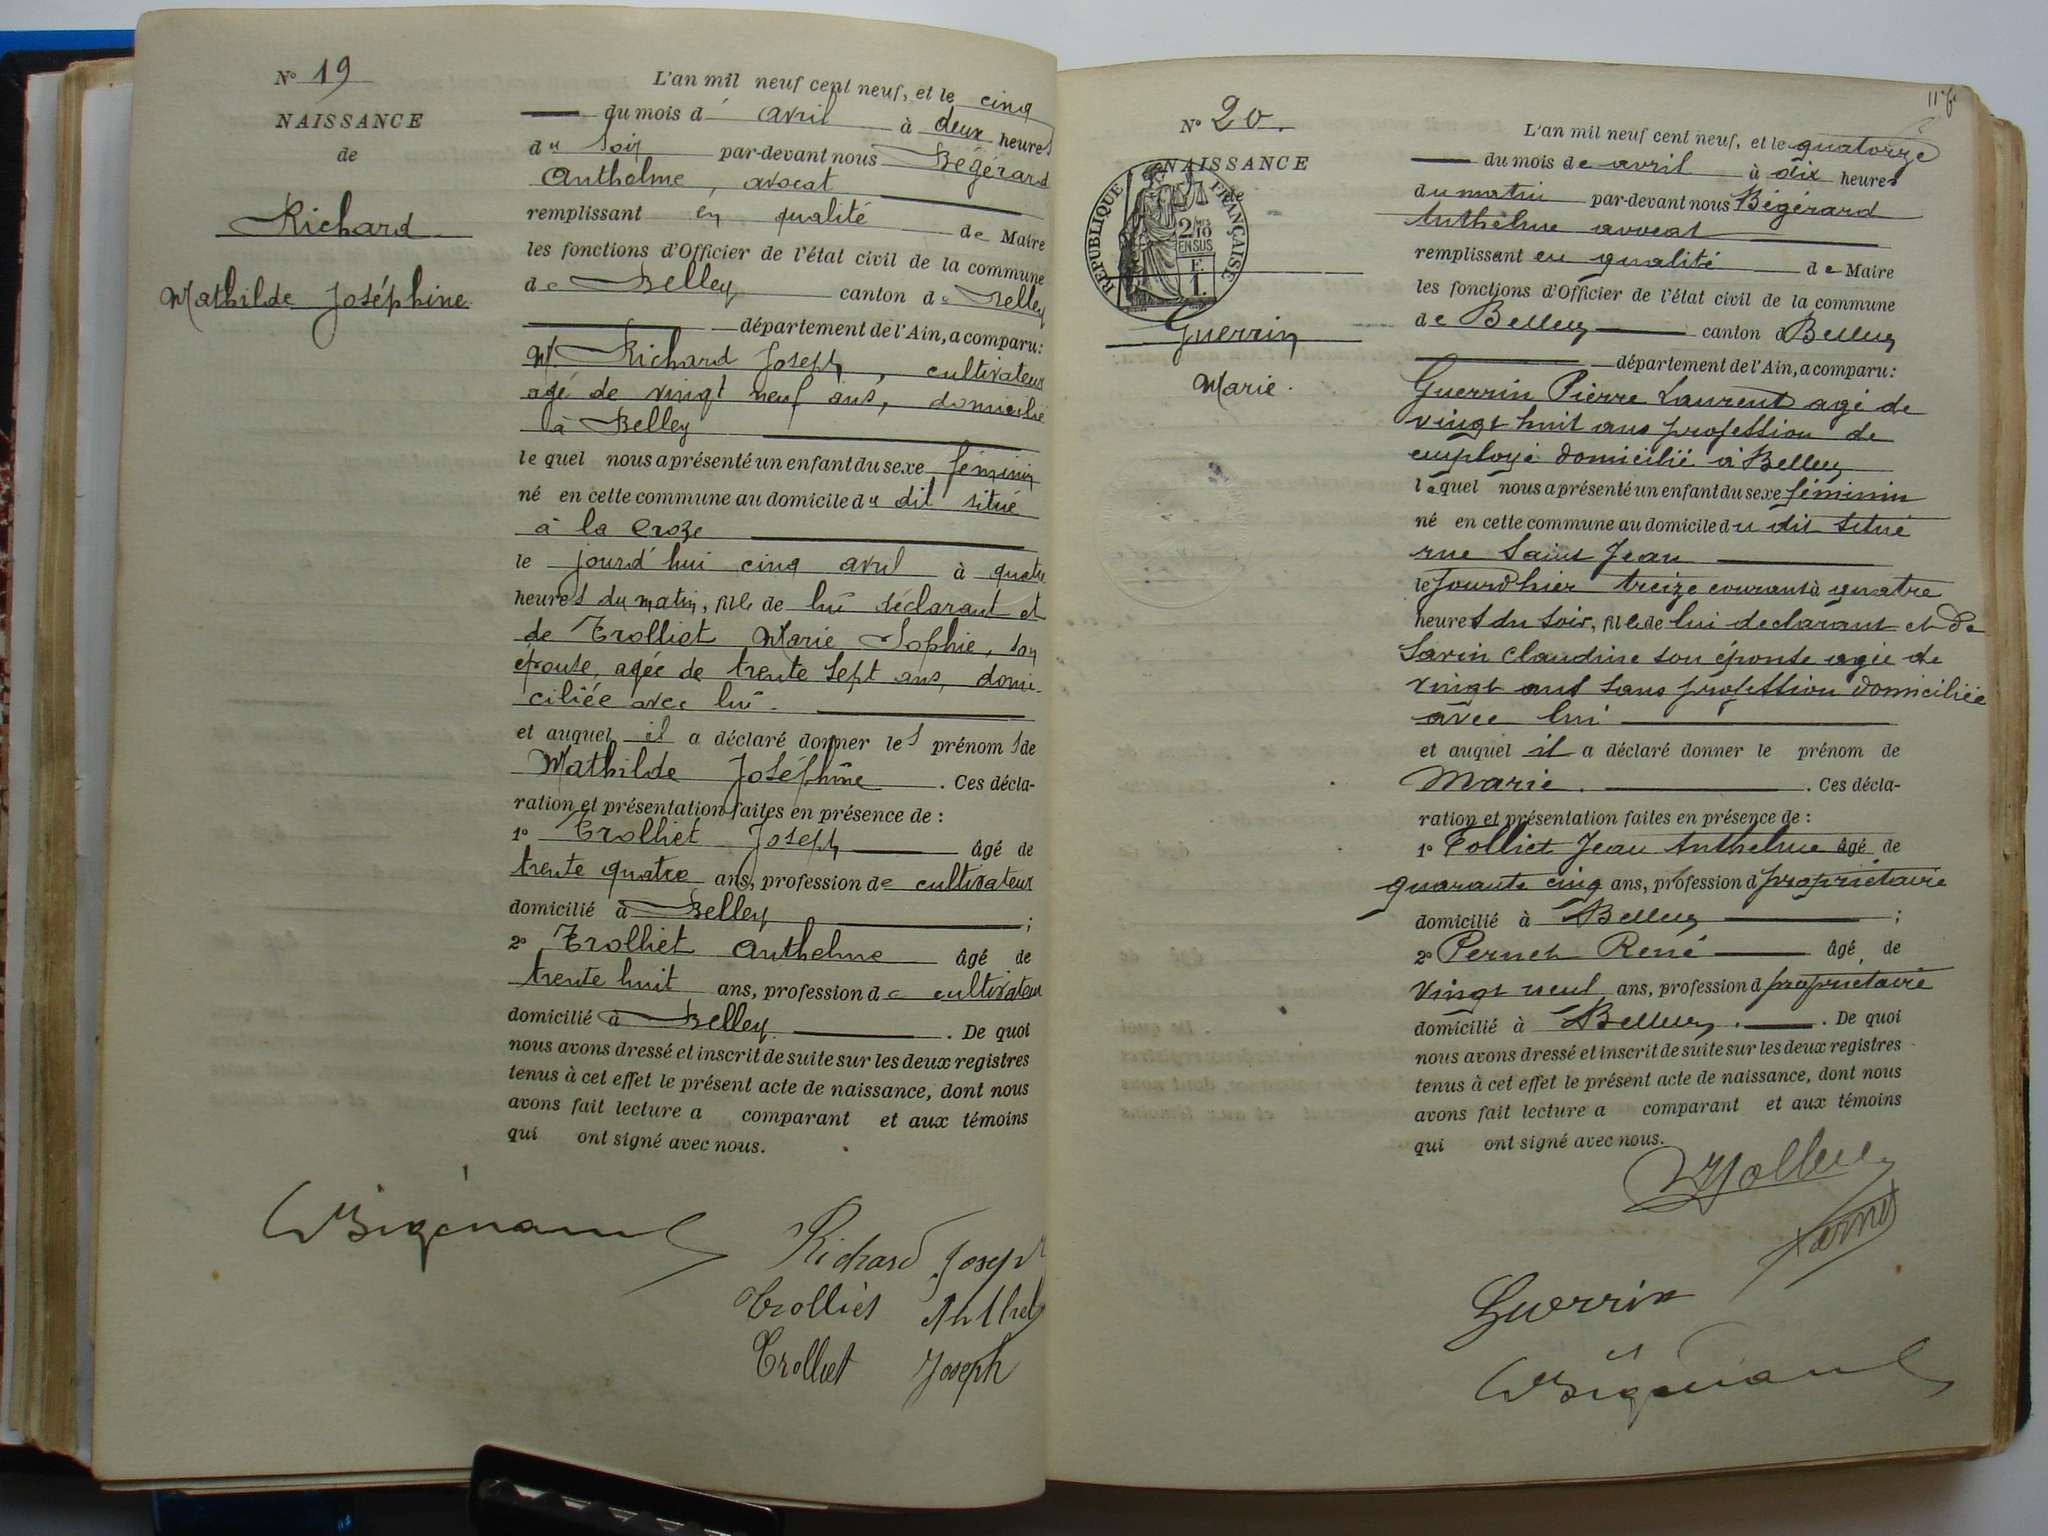 N° 19
NAISSANCE
de
Richard
Mathilde Joséphine
L'an mil neuf cent neuf, et le cinq
du mois d' avril à deux heures
du soir par-devant nous Bégérard
Anthelme, avocat
remplissant en qualité de Maire
les fonctions d'Officier de l'état civil de la commune
de Belley canton de Belley
département de l'Ain, a comparu:
M. Richard Joseph, cultivateur
agé de vingt neuf ans, domicilié
à Belley
le quel nous a présenté un enfant du sexe féminin
né en cette commune au domicile du dit situé
à la Croze
le jourd'hui cinq avril à quatre
heures du matin, fille de lui déclarant et
de Trolliet Marie Sophie, son
épouse, agée de trente sept ans, domi-
ciliée avec lui.
et auquel il a déclaré donner les prénoms de
Mathilde Joséphine . Ces décla-
ration et présentation faites en présence de :
1° Trolliet Joseph âgé de
trente quatre ans, profession de cultivateur
domicilié à Belley ;
2° Trolliet Anthelme âgé de
trente huit ans, profession de cultivateur
domicilié à Belley . De quoi
nous avons dressé et inscrit de suite sur les deux registres
tenus à cet effet le présent acte de naissance, dont nous
avons fait lecture a comparant et aux témoins
qui ont signé avec nous.
Richard Joseph
Trolliet Anthel
Trolliet Joseph
N° 20.
NAISSANCE
de
RÉPUBLIQUE FRANÇAISE
2/10
EN SUS
Guerrin
Marie.
L'an mil neuf cent neuf, et le quatorze
du mois de avril à dix heures
du matin par-devant nous Bégérard
Anthelme avocat
remplissant en qualité de Maire
les fonctions d'Officier de l'état civil de la commune
de Belley canton d Belley
département de l'Ain, a comparu:
Guerrin Pierre Laurent agé de
vingt huit ans profession de
employé domicilié à Belley
le quel nous a présenté un enfant du sexe féminin
né en cette commune au domicile du dit situé
rue Saint Jean
le jourd'hier treize courant à quatre
heures du soir, fille de lui declarant et de
Savin Claudine son épouse agée de
vingt ans sans profession domiciliée
avec lui
et auquel il a déclaré donner le prénom de
Marie. . Ces décla-
ration et présentation faites en présence de :
1° Tolliet Jean Anthelme âgé de
quarante cinq ans, profession d propriétaire
domicilié à Belley ;
2° Pernet René âgé de
vingt neuf ans, profession d propriétaire
domicilié à Belley . De quoi
nous avons dressé et inscrit de suite sur les deux registres
tenus à cet effet le présent acte de naissance, dont nous
avons fait lecture a comparant et aux témoins
qui ont signé avec nous.
Guerrin